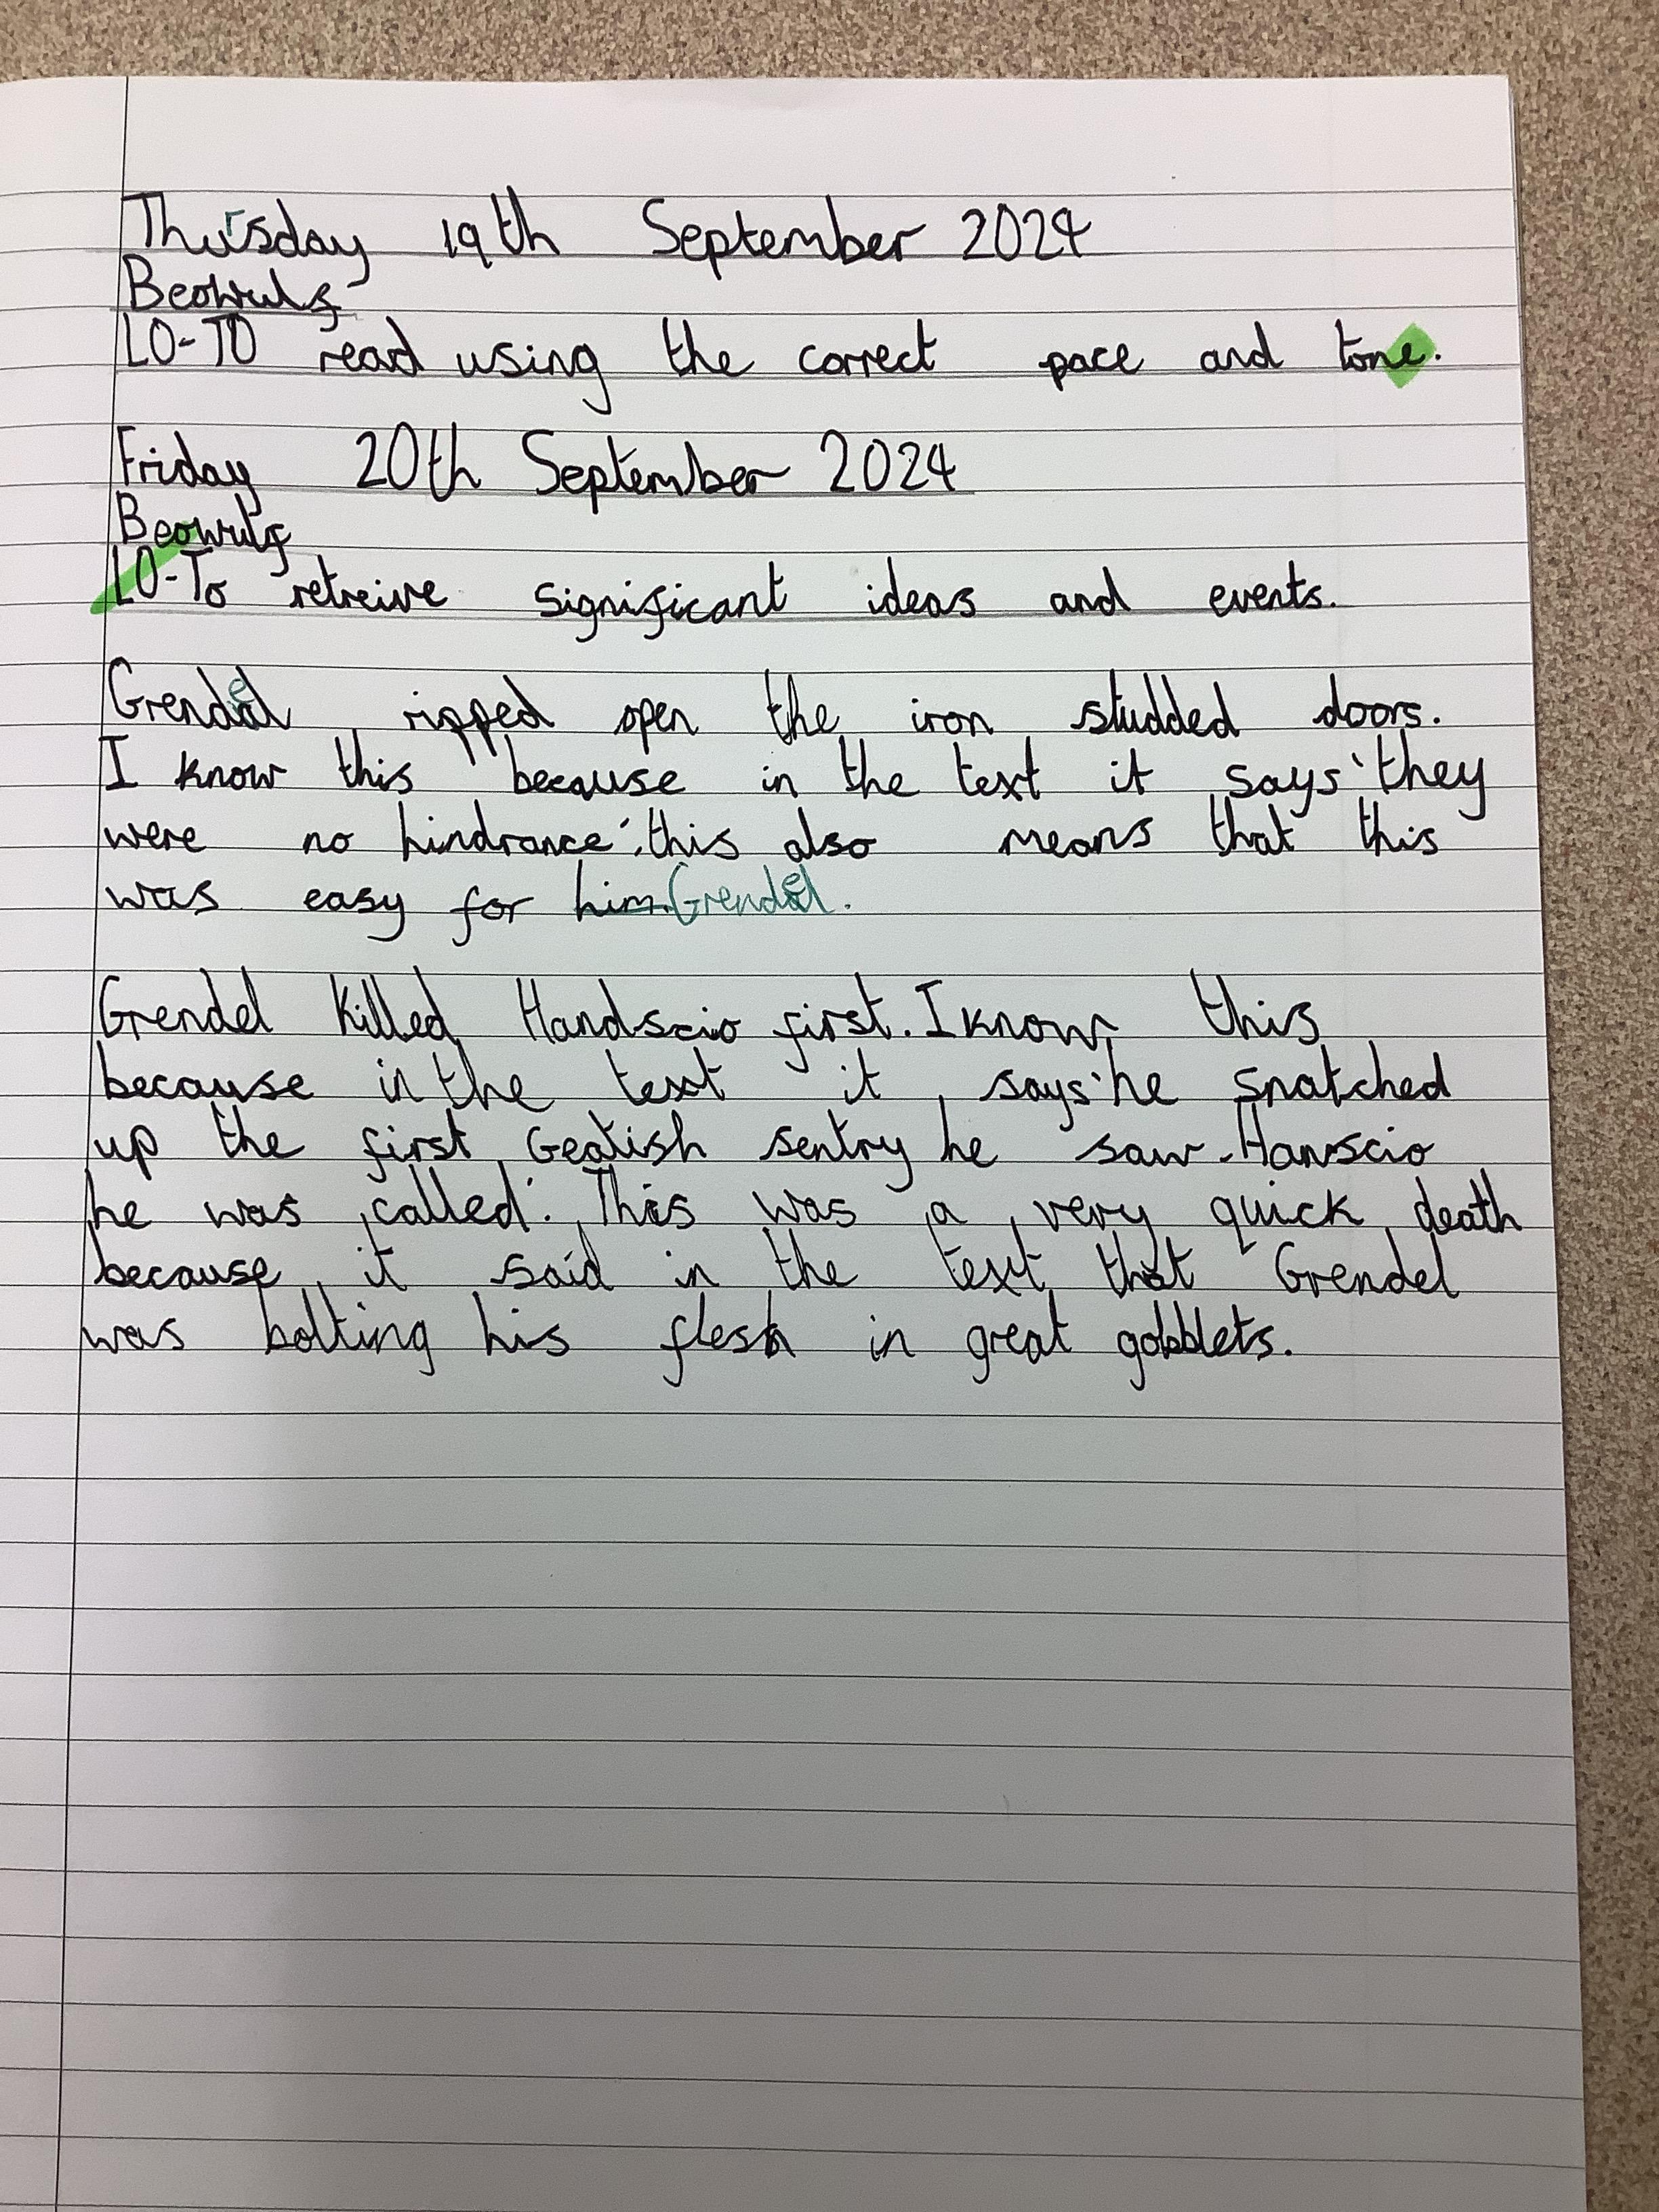 Thursday 19th September 2024
Beowulf
LO-TO read using the correct pace and tone.
Friday 20th September 2024
Beowulf
LO-To retreive significant ideas and events.
Grendel ripped open the iron studded doors.
I know this because in the text it says 'they
were no hindrance'. this also means that this
was easy for him. Grendel.
Grendel killed Handscio first. I know this
because in the text it says 'he snatched
up the first Geatish sentry he saw - Hanscio
he was called'. This was a very quick death
because it said in the text that Grendel
was bolting his flesh in great gobblets.